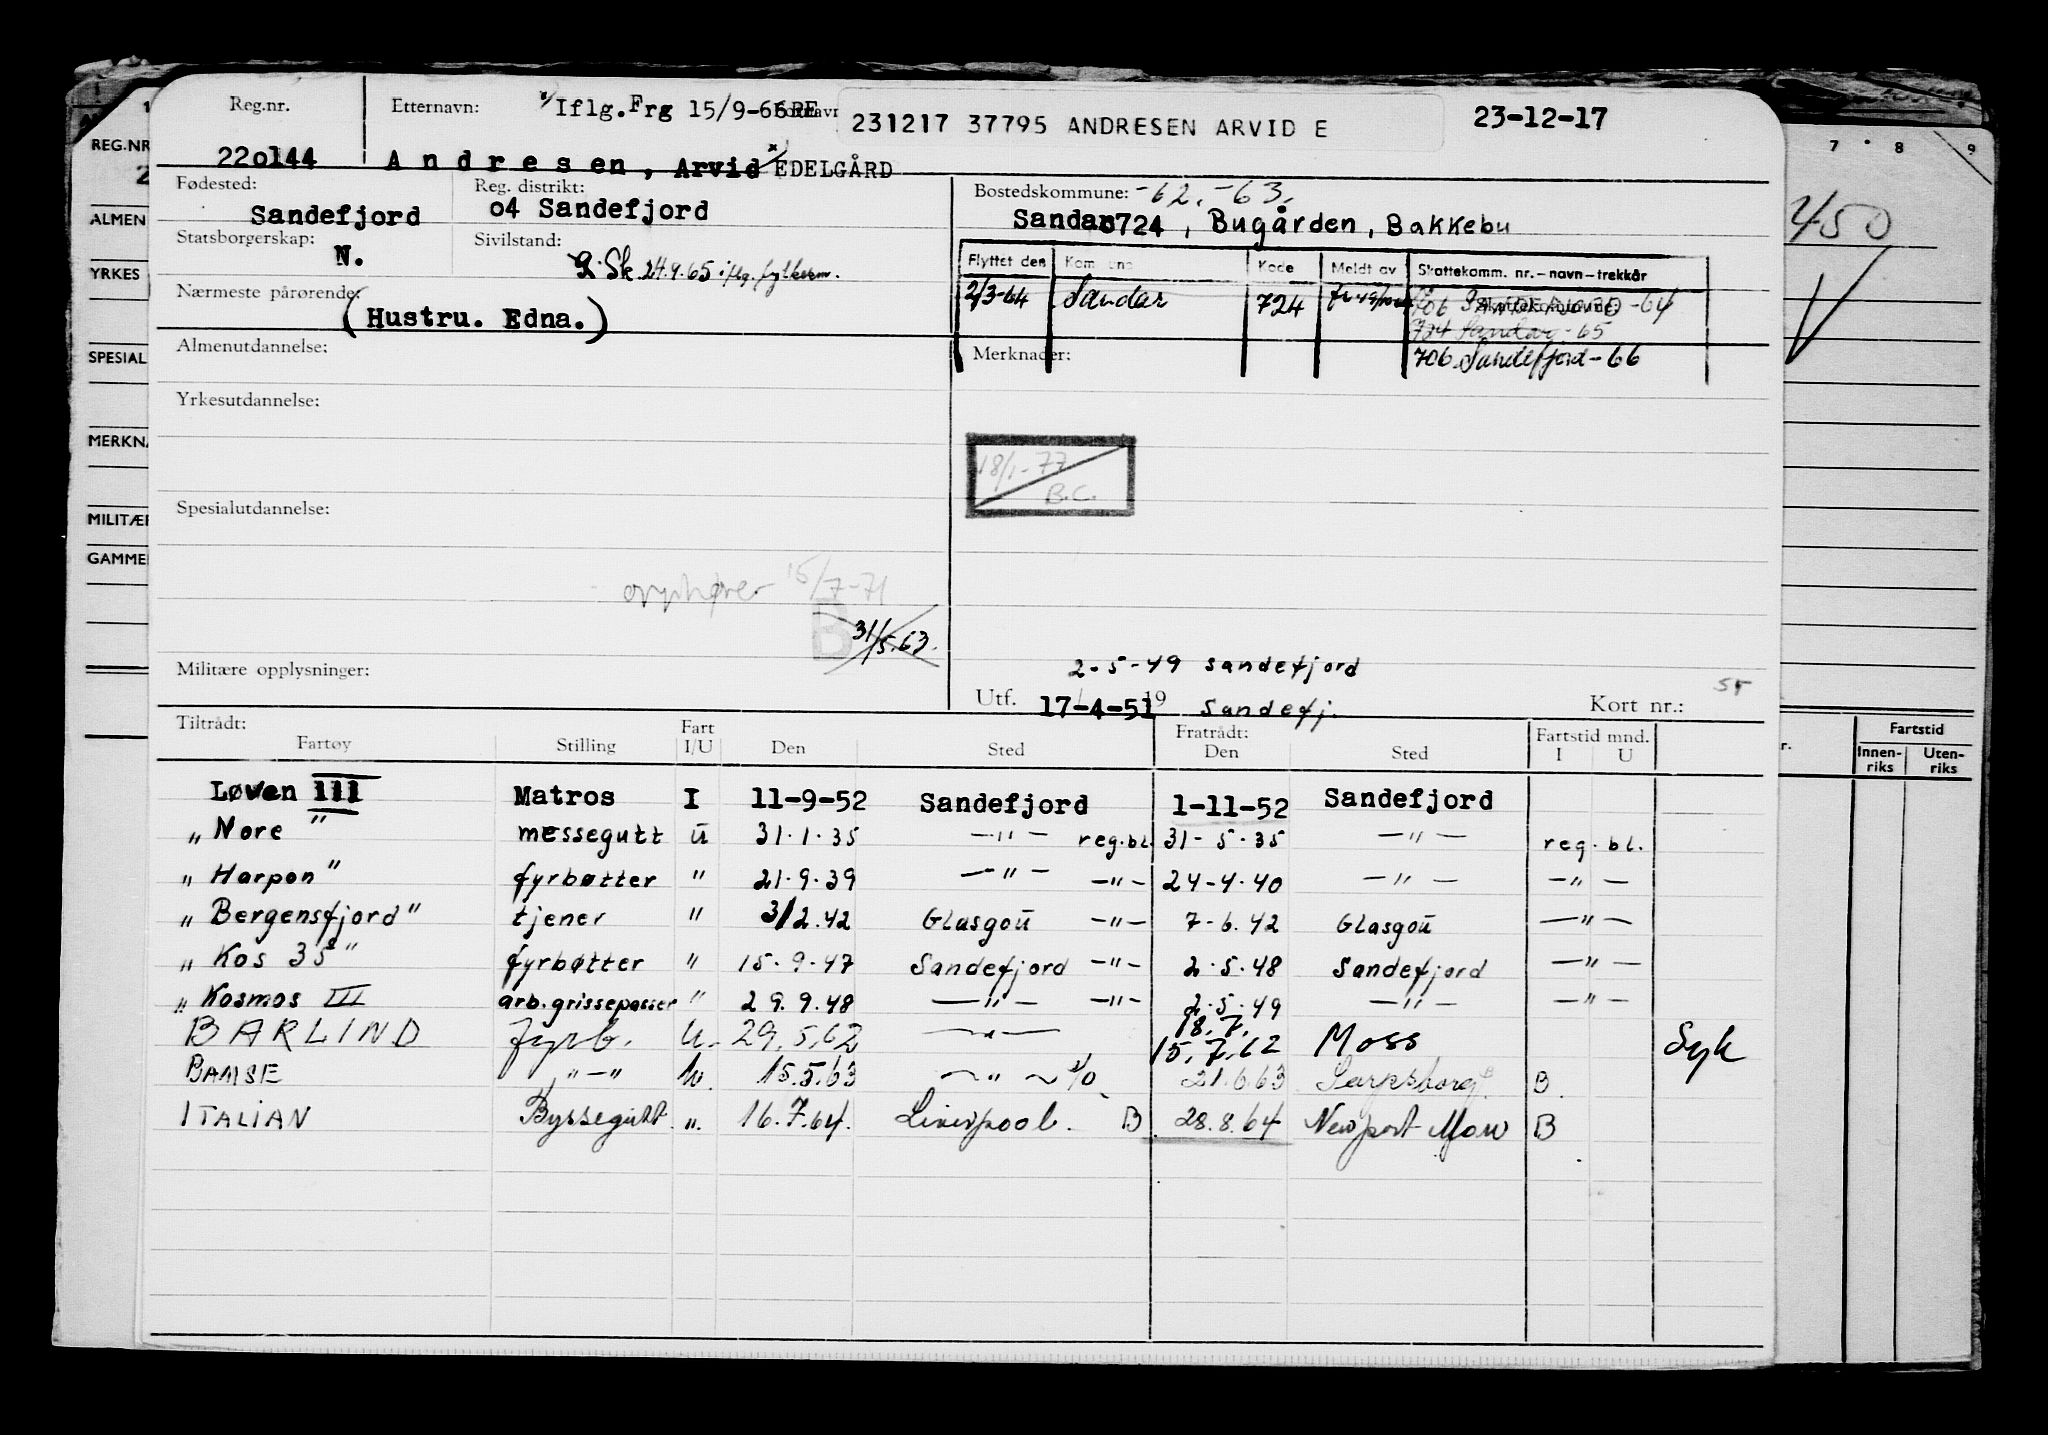 Reg.nr. Etternavn: x/ Iflg. Frg 15/9-66 RE 231217 37795 ANDRESEN ARVID E 23-12-17
220144 Andresen, Arvid x/ EDELGÅRD
Fødested: Reg. distrikt: Bostedskommune: -62,-63.
Sandefjord 04 Sandefjord Sandar 0724, Bugården, Bakkebu
Statsborgerskap: Sivilstand:
N. G. Sk. 24.9.65 iflg.
Flyttet den Kommune Kode Meldt av Skattekomm. nr.-navn-trekkår
Nærmeste pårørende:
2/3-64 Sandar 724 706 SANDEFJORD -64
(Hustru. Edna.)
724 Sandar -65
Almenutdannelse: Merknader: 706 Sandefjord -66
Yrkesutdannelse:
18/1-77
B.C.
Spesialutdannelse:
opphører 15/7-71
B 31/5.63.
Militære opplysninger: 2-5-49 Sandefjord
Utf. 17-4-51 19 Sandefj. Kort nr.:
Tiltrådt: Fart Fratrådt: Fartstid mnd.
Fartøy Stilling I/U Den Sted Den Sted I U
Løven III Matros I 11-9-52 Sandefjord 1-11-52 Sandefjord
„Nore" messegutt U 31.1.35 —"— reg.bl. 31-5.35 —"— reg. bl.
„Harpon" fyrbøtter " 21.9.39 —"— —"— 24-4.40 —"— —"—
„Bergensfjord" tjener " 3/2.42 Glasgou —"— 7-6.42 Glasgou —"—
„Kos 35" fyrbøtter " 15.9.47 Sandefjord —"— 2.5.48 Sandefjord —"—
„Kosmos III arb.grissepasser " 29.9.48 —"— —"— 2.5.49 —"— —"—
BARLIND fyrb. U. 29.5.62 —"— 18.7. 15.7.62 Moss Syk
BAMSE "—" 15.5.63 —"— 21.6.63 Sarpsborg B B.
ITALIAN Byssegutt ". 16.7.64. Liverpool. B 28.8.64 Newport Mon B
REG.NR
ALMEN
YRKES
SPESIAL
MERKNA
MILITÆR
GAMMEL
7 8 9
450
Fartstid
Innen-riks Uten-riks